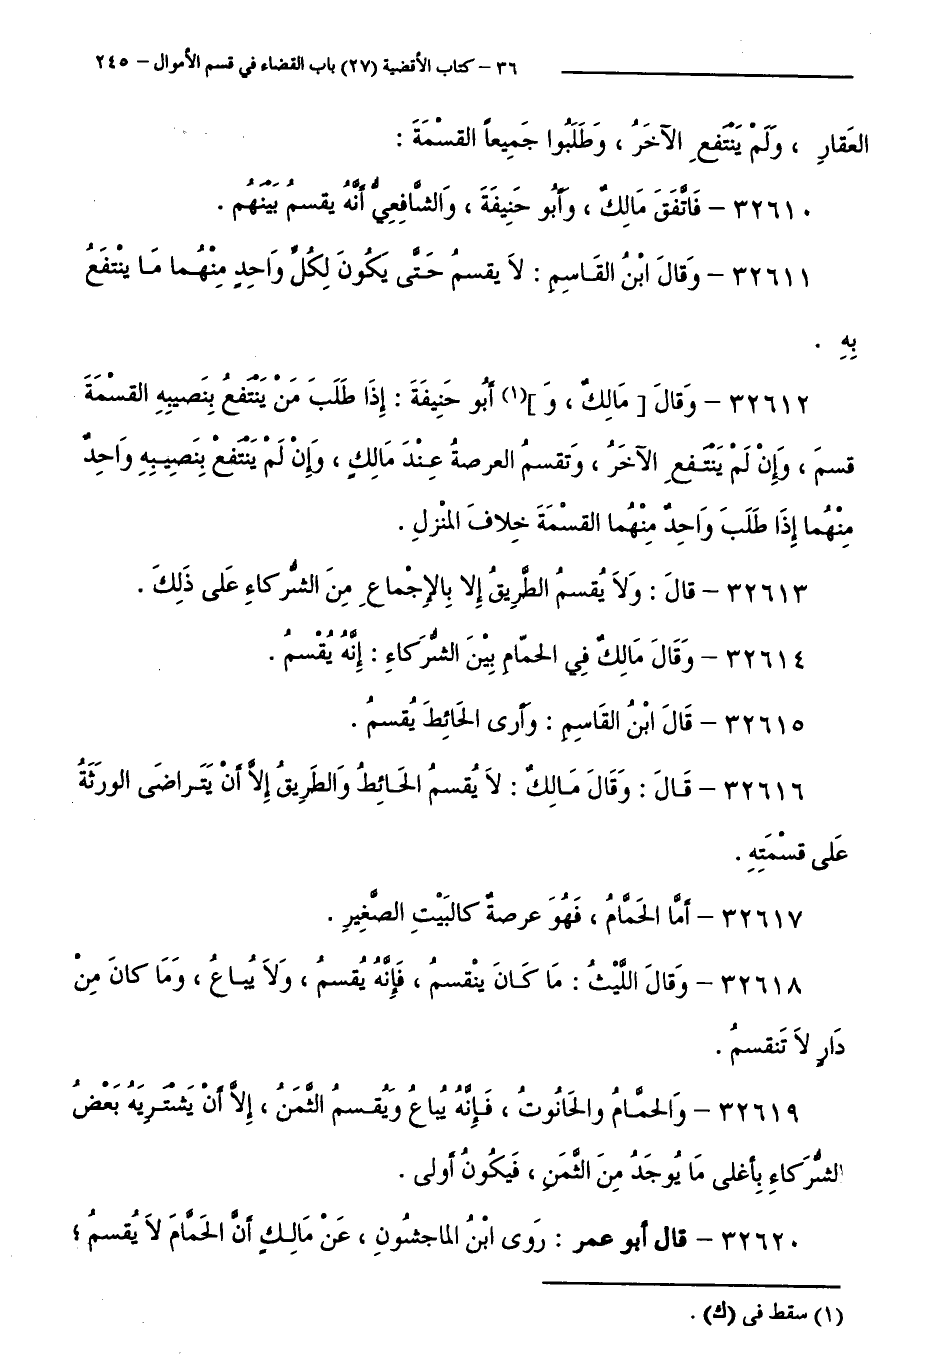 ٣٦ – كتاب الأقضية (٢٧) باب القضاء في قسم الأموال – ٢٤٥
العَقارِ ، وَلَمْ يَنْتَفعِ الآخَرُ ، وَطَلَبُوا جَمِيعاً القسْمَةَ :
٣٢٦١٠ – فَاتَّفَقَ مَالِكٌ ، وَأَبُو حَنِيفَةَ ، وَالشَّافِعِيُّ أَنَّهُ يقسمُ بَيْنَهُم .
٣٢٦١١ – وَقَالَ ابْنُ القَاسِمِ : لاَ يقسمُ حَتَّى يَكُونَ لِكُلِّ وَاحِدٍ مِنْهُما مَا ينْتفَعُ
بِهِ .
٣٢٦١٢ – وَقَالَ [ مَالِكٌ ، وَ ](١) أَبُو حَنِيفَةَ : إِذَا طَلَبَ مَنْ يَنْتَفعُ بِنَصيبِهِ القسْمَةَ
قسمَ ، وَإِنْ لَمْ يَنْتَفعِ الآخَرُ ، وَتقسمُ العرصةُ عِنْدَ مَالِكٍ ، وَإِنْ لَمْ يَنْتَفعْ بِنَصِيبِهِ وَاحِدٌ
مِنْهُما إِذَا طَلَبَ وَاحِدٌ مِنْهُما القسْمَةَ خِلافَ المْنْزلِ .
٣٢٦١٣ – قالَ : وَلاَ يُقسمُ الطَّرِيقُ إِلا بِالإِجْماعِ مِنَ الشُّركاءِ عَلى ذَلِكَ .
٣٢٦١٤ – وَقَالَ مَالِكٌ فِي الحمّامِ بيْنَ الشُّرَكاءِ : إِنَّهُ يُقْسمُ .
٣٢٦١٥ – قَالَ ابْنُ القَاسِمِ : وَأَرى الحَائِطَ يُقسمُ .
٣٢٦١٦ – قَالَ : وَقَالَ مَالِكٌ : لاَ يُقسمُ الحَائِطُ وَالطَرِيقُ إِلاَّ أَنْ يَتَراضَى الورَثَةُ
عَلى قسْمَتِهِ .
٣٢٦١٧ – أَمَّا الحَمَّامُ ، فَهُوَ عرصةٌ كالبَيْتِ الصَّغِيرِ .
٣٢٦١٨ – وَقالَ اللَّيْثُ : مَا كَانَ ينْقسمُ ، فَإِنَّهُ يُقسمُ ، وَلاَ يُباعُ ، وَمَا كانَ مِنْ
دَارٍ لاَ تَنقسمُ .
٣٢٦١٩ – وَالحمَّامُ والحَانُوتُ ، فَإِنَّهُ يُباعُ ويُقسمُ الثَّمَنُ ، إِلاَّ أَنْ يَشْتَرِيَهُ بَعْضُ
الشُّرَكاءِ بِأَغلى مَا يُوجَدُ مِنَ الثَّمَنِ ، فَيكُونُ أَولى .
٣٢٦٢٠ – قال أبو عمر : رَوى ابْنُ الماجشُونِ ، عَنْ مَالِكٍ أَنَّ الحَمَّامَ لاَ يُقسمُ ؛
(١) سقط في (ك) .